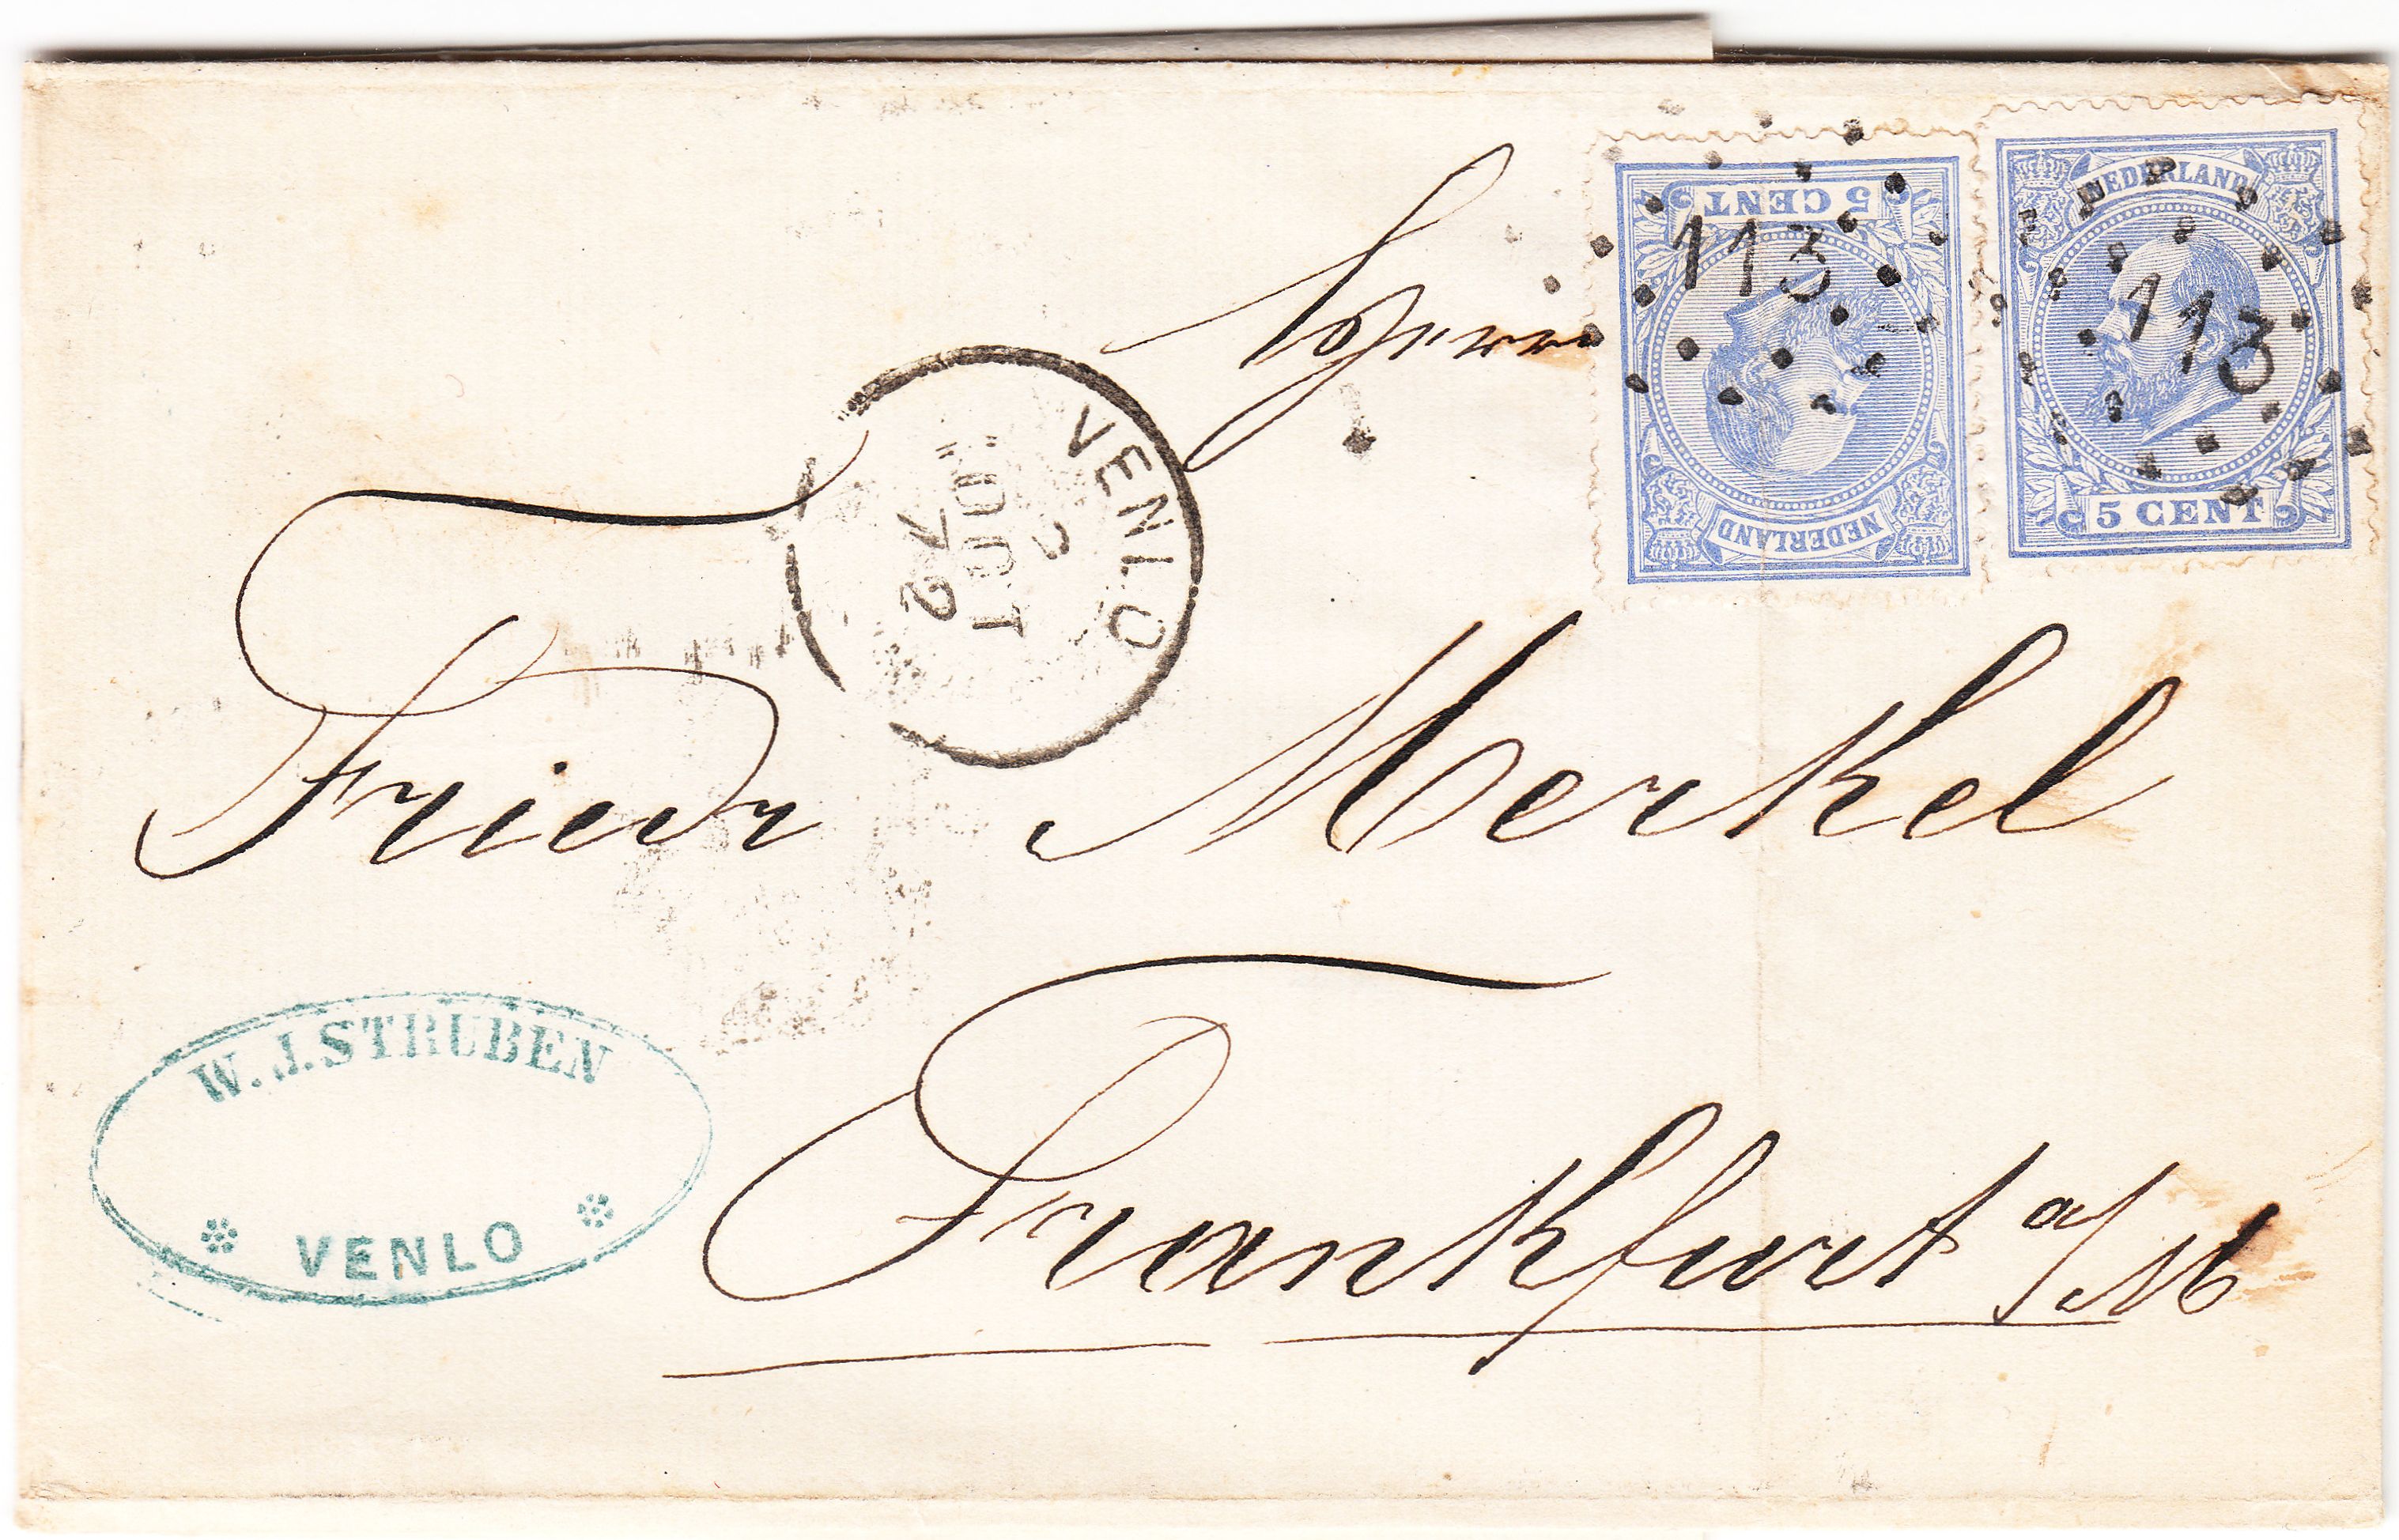 Herrn
5 CENT
NEDERLAND
113
NEDERLAND
5 CENT
113
VENLO
2
OCT
72
Friedr Merkel
Frankfurt a/M
W. J. STRUBEN
VENLO